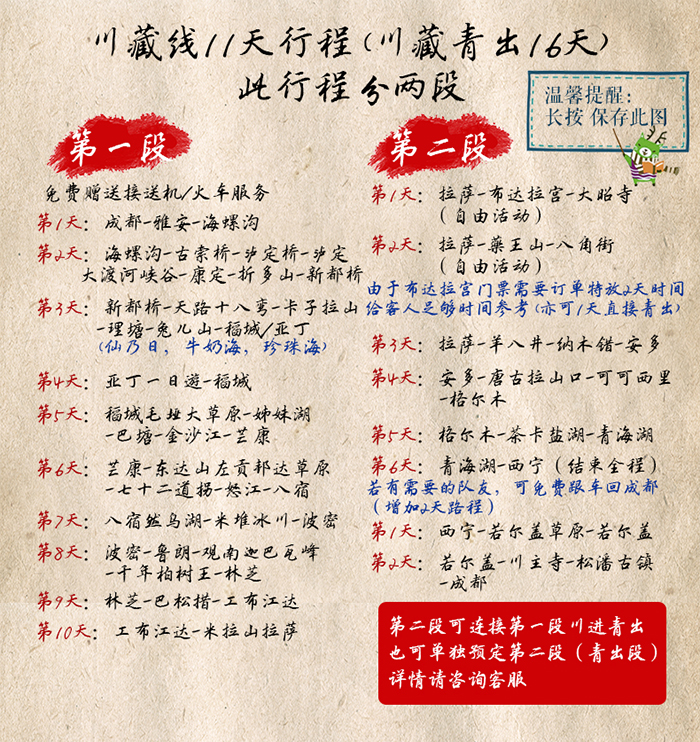 川藏线11天行程(川藏青出16天)
此行程分两段
温馨提醒:
长按 保存此图
第一段
免费赠送接送机/火车服务
第1天: 成都-雅安-海螺沟
第2天: 海螺沟-古索桥-泸定桥-泸定
大渡河峡谷-康定-折多山-新都桥
第3天: 新都桥-天路十八弯-卡子拉山
-理塘-兔儿山-稻城/亚丁
(仙乃日, 牛奶海, 珍珠海)
第4天: 亚丁一日遊-稻城
第5天: 稻城毛垭大草原-姊妹湖
-巴塘-金沙江-芒康
第6天: 芒康-东达山左贡邦达草原
-七十二道拐-怒江-八宿
第7天: 八宿然乌湖-米堆冰川-波密
第8天: 波密-鲁朗-观南迦巴瓦峰
-千年柏树王-林芝
第9天: 林芝-巴松措-工布江达
第10天: 工布江达-米拉山拉萨
第二段
第1天: 拉萨-布达拉宫-大昭寺
(自由活动)
第2天: 拉萨-藥王山-八角街
(自由活动)
由于布达拉宫门票需要订单特放2天时间
给客人足够时间参考(亦可1天直接青出)
第3天: 拉萨-羊八井-纳木错-安多
第4天: 安多-唐古拉山口-可可西里
-格尔木
第5天: 格尔木-茶卡盐湖-青海湖
第6天: 青海湖-西宁(结束全程)
若有需要的队友, 可免费跟车回成都
(增加2天路程)
第1天: 西宁-若尔盖草原-若尔盖
第2天: 若尔盖-川主寺-松潘古镇
-成都
第二段可连接第一段川进青出
也可单独预定第二段(青出段)
详情请咨询客服